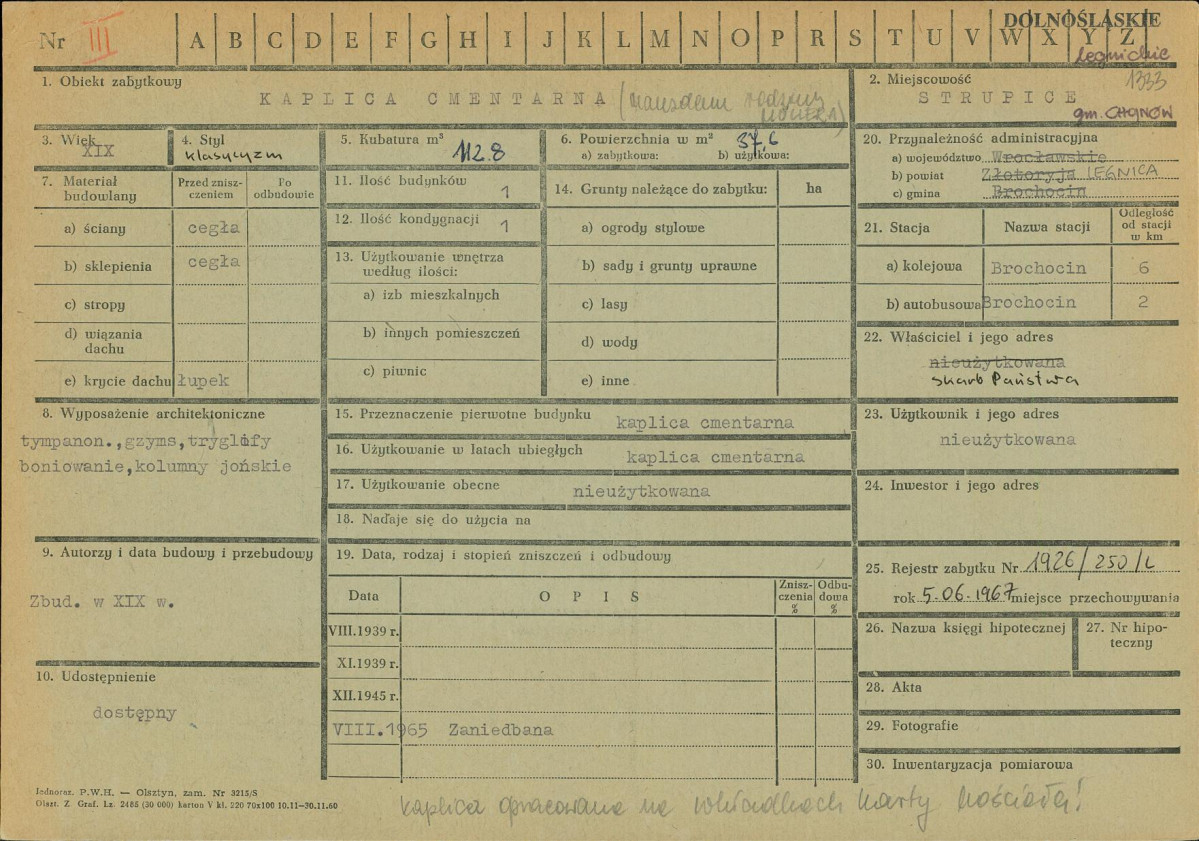 Nr III A B C D E F G H I J K L M N O P R S T U V W X Y Z
DOLNOŚLĄSKIE
Legnickie
1333
1. Obiekt zabytkowy
KAPLICA CMENTARNA (mauzoleum rodziny
2. Miejscowość
STRUPICE
gm. CHOJNÓW
3. Wiek
XIX
4. Styl
klasycyzm
5. Kubatura m³
112.8
6. Powierzchnia w m² 37,6
a) zabytkowa: b) użytkowa:
7. Materiał budowlany
Przed zniszczeniem
Po odbudowie
a) ściany cegła
b) sklepienia cegła
c) stropy
d) wiązania dachu
e) krycie dachu łupek
8. Wyposażenie architektoniczne
tympanon.,gzyms,tryglify
boniowanie,kolumny jońskie
9. Autorzy i data budowy i przebudowy
Zbud. w XIX w.
10. Udostępnienie
dostępny
11. Ilość budynków 1
12. Ilość kondygnacji 1
13. Użytkowanie wnętrza
według ilości:
a) izb mieszkalnych
b) innych pomieszczeń
c) piwnic
14. Grunty należące do zabytku: ha
a) ogrody stylowe
b) sady i grunty uprawne
c) lasy
d) wody
e) inne
15. Przeznaczenie pierwotne budynku kaplica cmentarna
16. Użytkowanie w latach ubiegłych kaplica cmentarna
17. Użytkowanie obecne nieużytkowana
18. Nadaje się do użycia na
19. Data, rodzaj i stopień zniszczeń i odbudowy
Data OPIS Zniszczenia % Odbudowa %
VIII.1939 r.
XI.1939 r.
XII.1945 r.
VIII.1965 Zaniedbana
20. Przynależność administracyjna
a) województwo Wrocławskie
b) powiat Złotoryja LEGNICA
c) gmina Brochocin
21. Stacja Nazwa stacji Odległość od stacji w km
a) kolejowa Brochocin 6
b) autobusowa Brochocin 2
22. Właściciel i jego adres
nieużytkowana
Skarb Państwa
23. Użytkownik i jego adres
nieużytkowana
24. Inwestor i jego adres
25. Rejestr zabytku Nr 1926/250/L
rok 5.06.1967 miejsce przechowywania
26. Nazwa księgi hipotecznej
27. Nr hipoteczny
28. Akta
29. Fotografie
30. Inwentaryzacja pomiarowa
Jednoraz. P.W.H. — Olsztyn, zam. Nr 3215/S
Olszt. Z. Graf. Lz. 2485 (30 000) karton V kl. 220 70x100 10.11—30.11.60
kaplica opracowana na wkładkach karty kościoła!